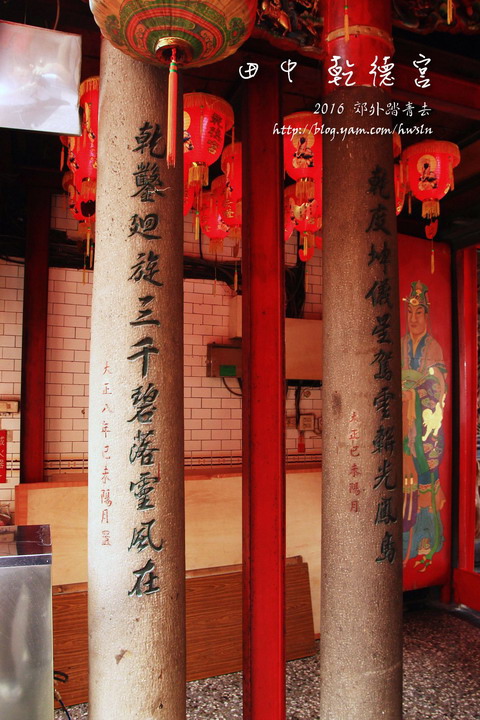 田中 乾德宮
2016 郊外踏青去
http://blog.yam.com/hw51n
乾度坤儀星駕雲軿光鳳鳥
大正己未陽月
乾鑾廻旋三千碧落靈風在
大正八年己未陽月